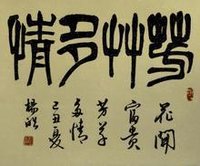 芳艸多情
花開
富貴
芳草
多情
己丑夏
楊